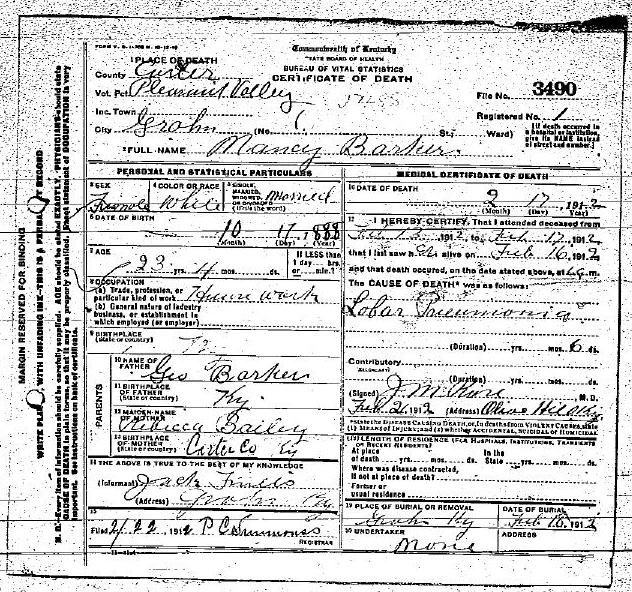 Commonwealth of Kentucky
STATE BOARD OF HEALTH
BUREAU OF VITAL STATISTICS
CERTIFICATE OF DEATH
1 PLACE OF DEATH
County Carter
Vot. Pct. Pleasant Valley
File No. 3490
Inc. Town
Registered No. 1
City Grahn (No. St.; Ward)
(If death occurred in a hospital or institution, give its NAME instead of street and number)
2 FULL NAME Nancy Barker
PERSONAL AND STATISTICAL PARTICULARS
3 SEX Female
4 COLOR OR RACE White
5 SINGLE, MARRIED, WIDOWED, OR DIVORCED (Write the word) Married
6 DATE OF BIRTH 10 17 1888
(Month) (Day) (Year)
7 AGE 23 yrs. 4 mos. ds.
If LESS than 1 day, hrs. or min.?
8 OCCUPATION
(a) Trade, profession, or particular kind of work House work
(b) General nature of industry business, or establishment in which employed (or employer)
9 BIRTHPLACE
(State or country)
PARENTS
10 NAME OF FATHER Geo Barker
11 BIRTHPLACE OF FATHER (State or country) Ky
12 MAIDEN NAME OF MOTHER Rebecca Bailey
13 BIRTHPLACE OF MOTHER (State or country) Carter Co Ky
14 THE ABOVE IS TRUE TO THE BEST OF MY KNOWLEDGE
(Informant) Jack Fields
(Address) Grahn Ky
15
Filed 2/22 1912 P. C. Simmons
REGISTRAR
MEDICAL CERTIFICATE OF DEATH
16 DATE OF DEATH
2 17 1912
(Month) (Day) (Year)
17 I HEREBY CERTIFY, That I attended deceased from
Feb 12 1912, to Feb 17 1912
that I last saw alive on Feb 16 1912
and that death occurred, on the date stated above, at m.
The CAUSE OF DEATH* was as follows:
Lobar Pneumonia
(Duration) yrs. mos. 6 ds.
Contributory
(Duration) yrs. mos. ds.
(Signed) J. M. M.D.
Feb 21 1912 (Address) Olive Hill Ky
*State the DISEASE CAUSING DEATH, or, in deaths from VIOLENT CAUSES, state (1) MEANS OF INJURY; and (2) whether ACCIDENTAL, SUICIDAL or HOMICIDAL.
18 LENGTH OF RESIDENCE (FOR HOSPITALS, INSTITUTIONS, TRANSIENTS OR RECENT RESIDENTS)
At place of death yrs. mos. ds. In the State yrs. mos. ds.
Where was disease contracted,
if not at place of death?
Former or usual residence
19 PLACE OF BURIAL OR REMOVAL Grahn Ky
DATE OF BURIAL Feb 18, 1912
20 UNDERTAKER None
ADDRESS
MARGIN RESERVED FOR BINDING
WRITE PLAINLY, WITH UNFADING INK—THIS IS A PERMANENT RECORD